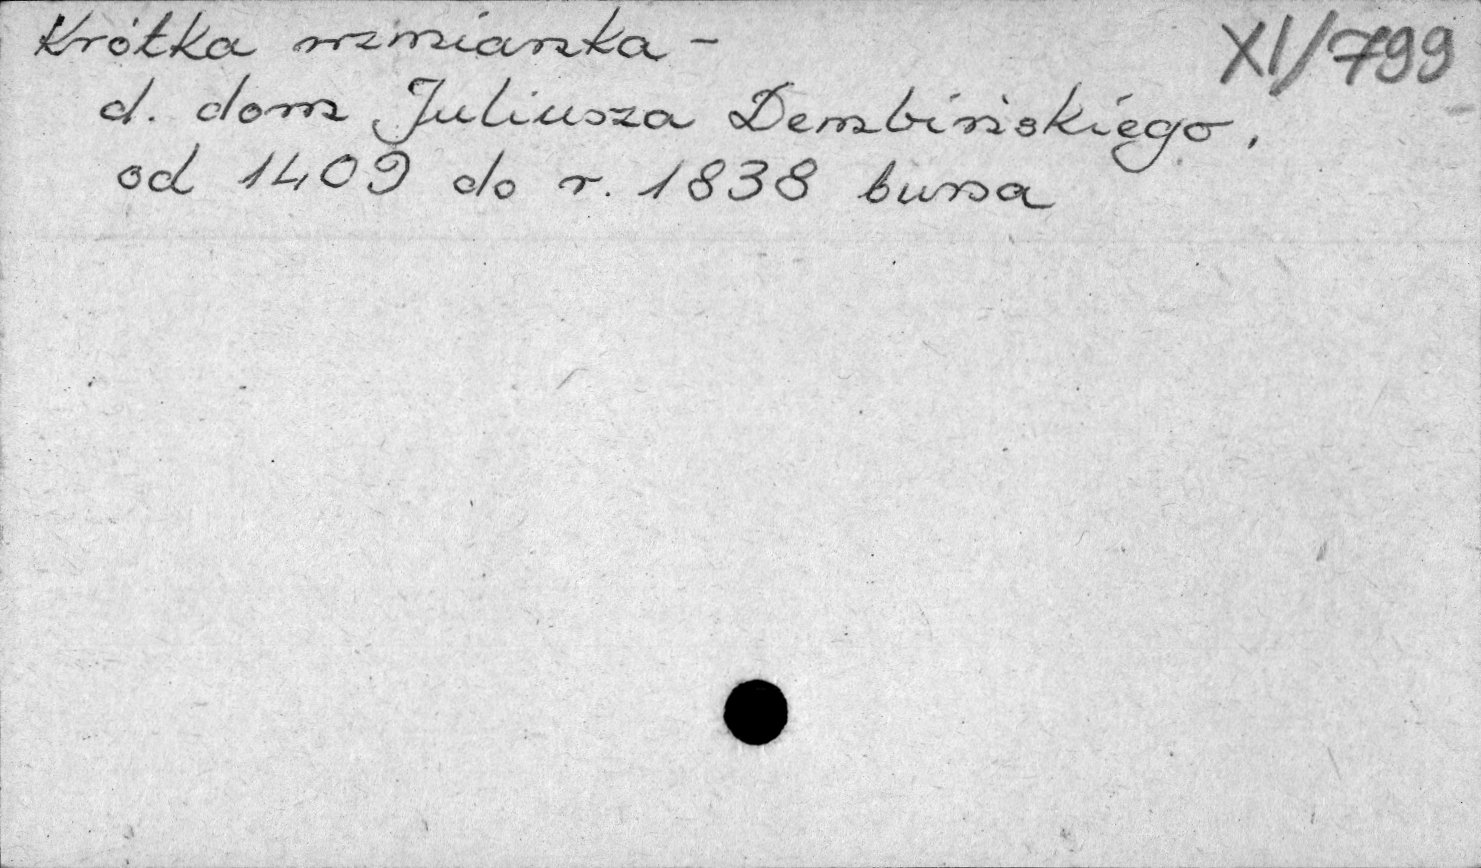 Krótka wzmianka - XI/799
d. dom Juliusza Dembińskiego,
od 1409 do r. 1838 bursa